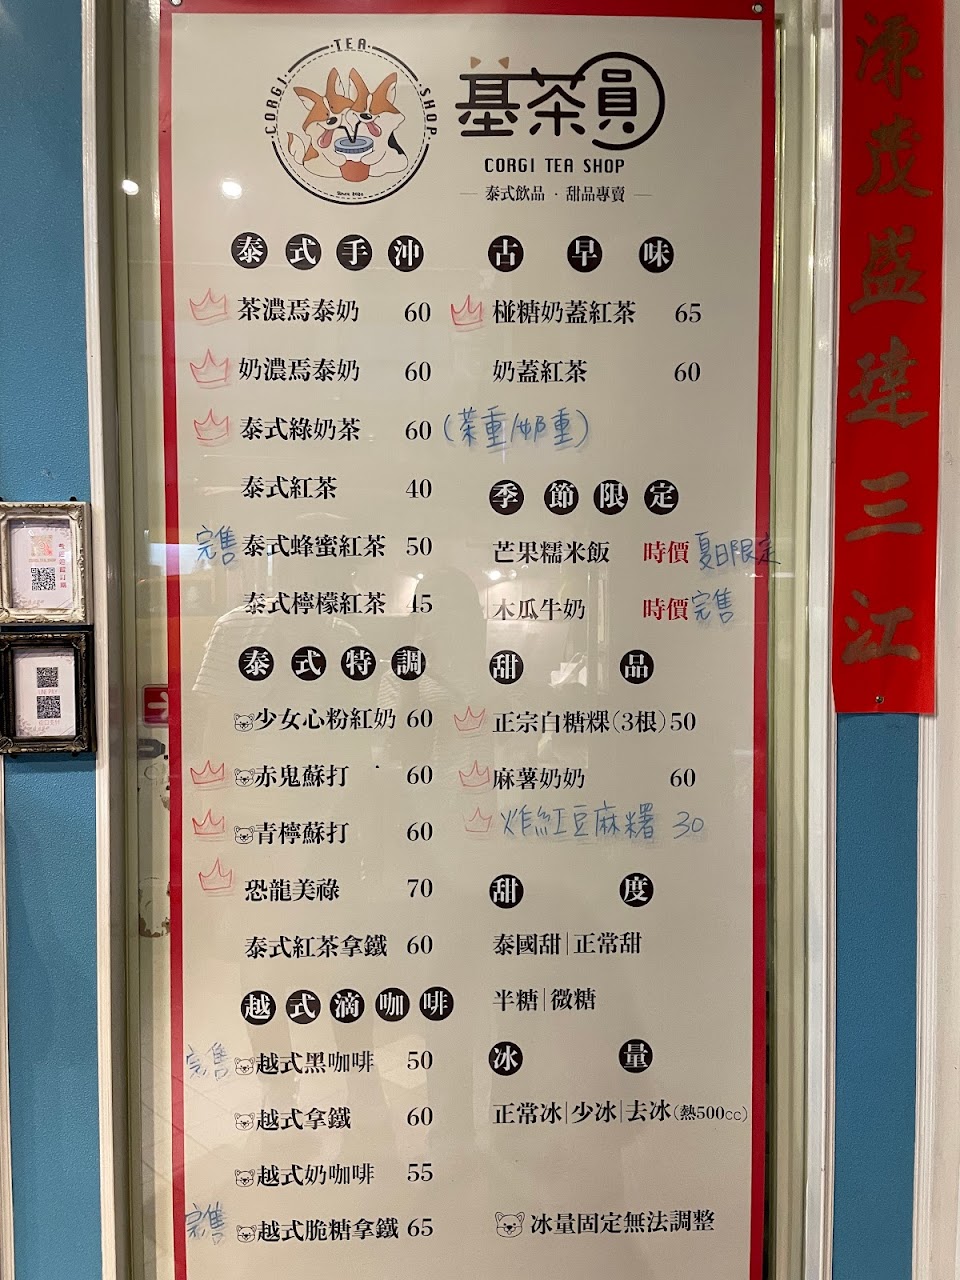 CORGI TEA SHOP
Since 2020
基茶員
CORGI TEA SHOP
泰式飲品 · 甜品專賣
泰式手沖
茶濃焉泰奶 60
奶濃焉泰奶 60
泰式綠奶茶 60 (茶重/奶重)
泰式紅茶 40
完售 泰式蜂蜜紅茶 50
泰式檸檬紅茶 45
泰式特調
少女心粉紅奶 60
赤鬼蘇打 60
青檸蘇打 60
恐龍美祿 70
泰式紅茶拿鐵 60
越式滴咖啡
完售 越式黑咖啡 50
越式拿鐵 60
越式奶咖啡 55
完售 越式脆糖拿鐵 65
古早味
椪糖奶蓋紅茶 65
奶蓋紅茶 60
季節限定
芒果糯米飯 時價 夏日限定
木瓜牛奶 時價 完售
甜品
正宗白糖粿(3根) 50
麻薯奶奶 60
炸紅豆麻糬 30
甜度
泰國甜|正常甜
半糖|微糖
冰量
正常冰|少冰|去冰(熱500cc)
冰量固定無法調整
源茂盛達三江